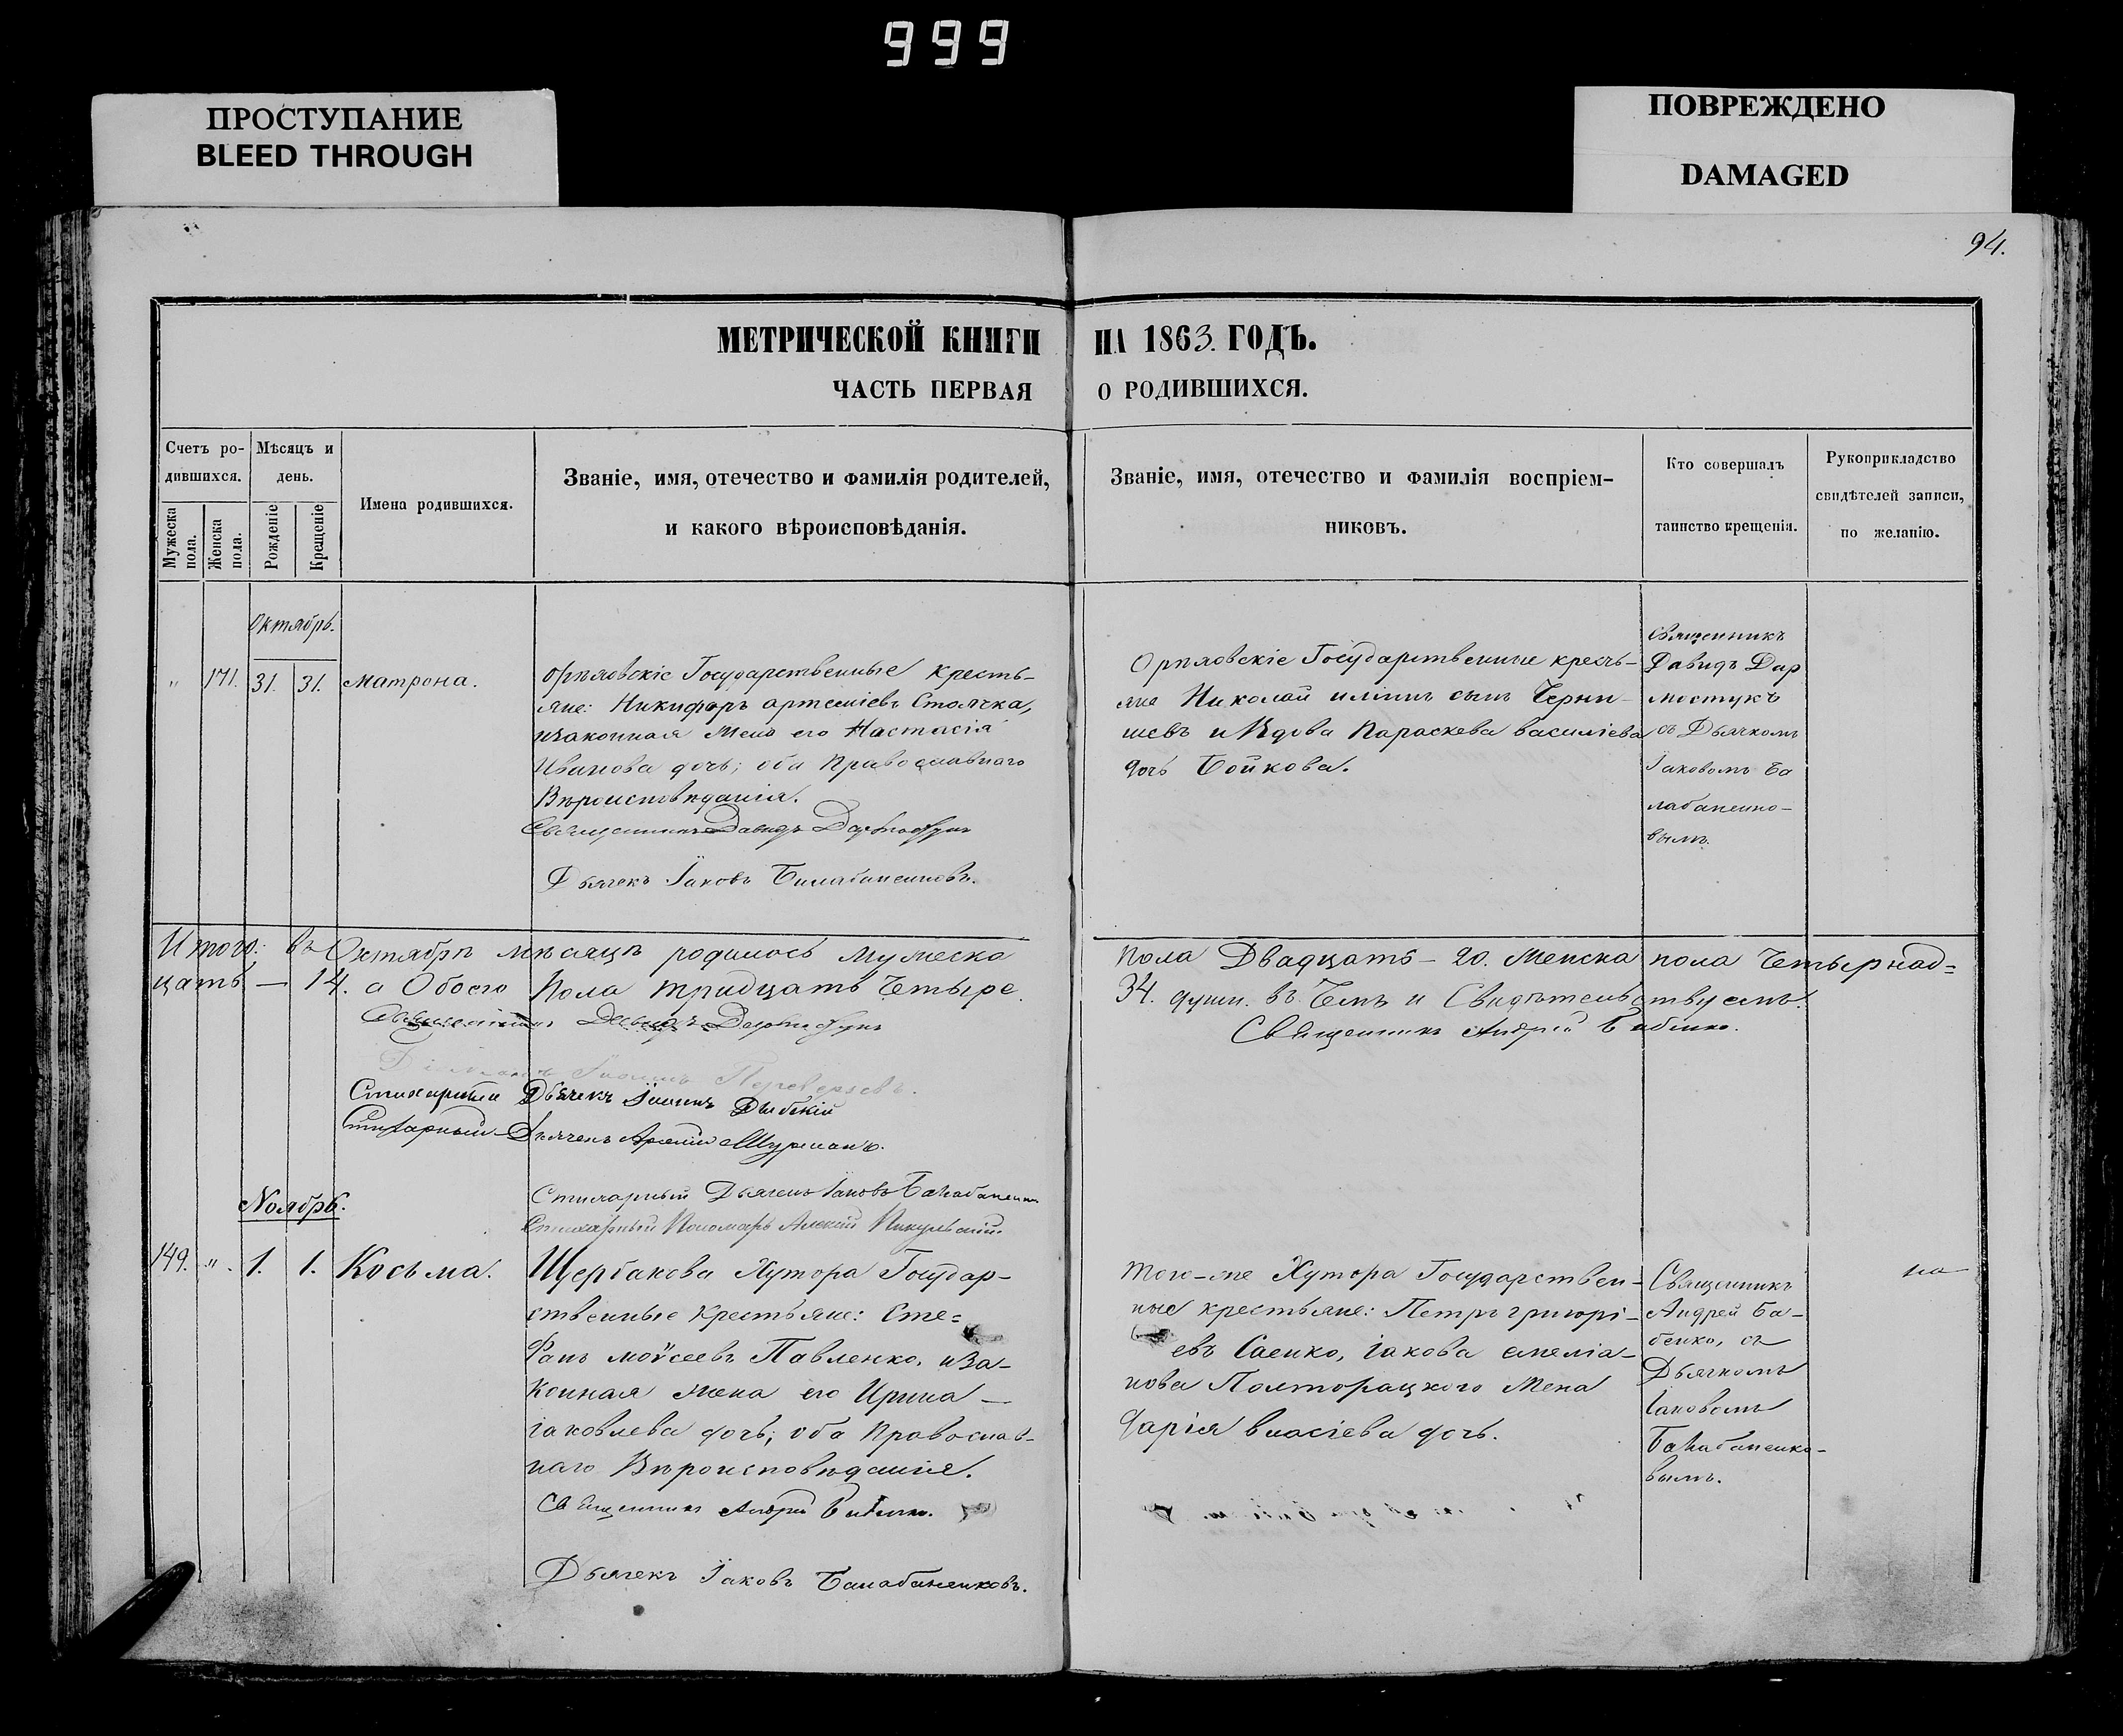 999
ПРОСТУПАНИЕ
BLEED THROUGH
ПОВРЕЖДЕНО
DAMAGED
94.
МЕТРИЧЕСКОЙ КНИГИ НА 1863. ГОДЪ.
ЧАСТЬ ПЕРВАЯ О РОДИВШИХСЯ.
Счетъ ро-
дившихся.
Мужеска
пола.
Женска
пола.
Мѣсяцъ и
день.
Рожденіе
Крещеніе
Имена родившихся.
Званіе, имя, отечество и фамилія родителей,
и какого вѣроисповѣданія.
Званіе, имя, отечество и фамилія воспріем-
никовъ.
Кто совершалъ
таинство крещенія.
Рукоприкладство
свидѣтелей записи,
по желанію.
Октябрь.
" 171. 31. 31. Матрона.
Орѣховскіе Государственные кресть-
яне: Никифоръ Артеміевъ Столчка,
и законная жена его Настасія
Иванова дочь; оба православнаго
Вѣроисповѣданія.
Священникъ Давидъ
Дьячекъ Іаковъ Балабаненковъ.
Орѣховскіе Государственные кресть-
яне Николай сынъ Черны-
шевъ и Вдова Параскева Василіева
дочь Бойкова.
Священникъ
Давидъ Дар
мостукъ
съ Дьячкомъ
Іаковомъ Ба
лабаненко-
вымъ.
Итого: въ Октябрѣ мѣсяцѣ родилось мужеска пола Двадцать - 20. Женска пола Четырнад=
цать — 14. а Обоего пола тридцать Четыре 34. души. въ Чемъ и Свидѣтельствуемъ.
Священникъ Давидъ
Священникъ Андрей Бабенко.
Стихарный Дьячекъ
Стихарный Дьячекъ Шурманъ.
Стихарный Дьячекъ Іаковъ Балабаненко
Стихарный Пономарь Алексій Пикульскій.
Ноябрь.
149. " . 1. 1. Косьма.
Щербакова Хутора Государ-
ственные крестьяне: Сте=
фанъ Моѵсеевъ Павленко, и за-
конная жена его Ирина —
Іаковлева дочь; оба Православ-
наго Вѣроисповѣданія.
Священникъ Андрей Бабенко.
Дьячекъ Іаковъ Балабаненковъ.
того-же Хутора Государствен-
ные крестьяне: Петръ Григорі-
евъ Саенко, Іакова Емеліа-
нова Полторацкого Жена
Дарія Власіева дочь.
Священникъ
Андрей Ба-
бенко, съ
Дьячкомъ
Іаковомъ
Балабаненко-
вымъ.